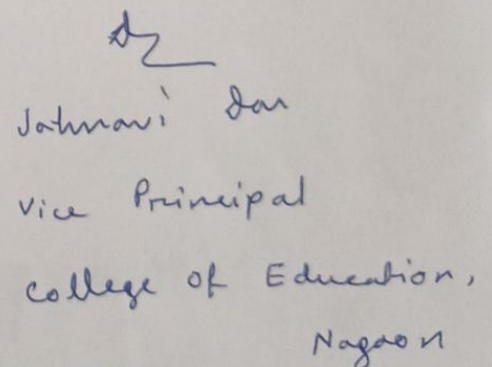 Jahnavi Das
Vice Principal
College of Education,
Nagaon